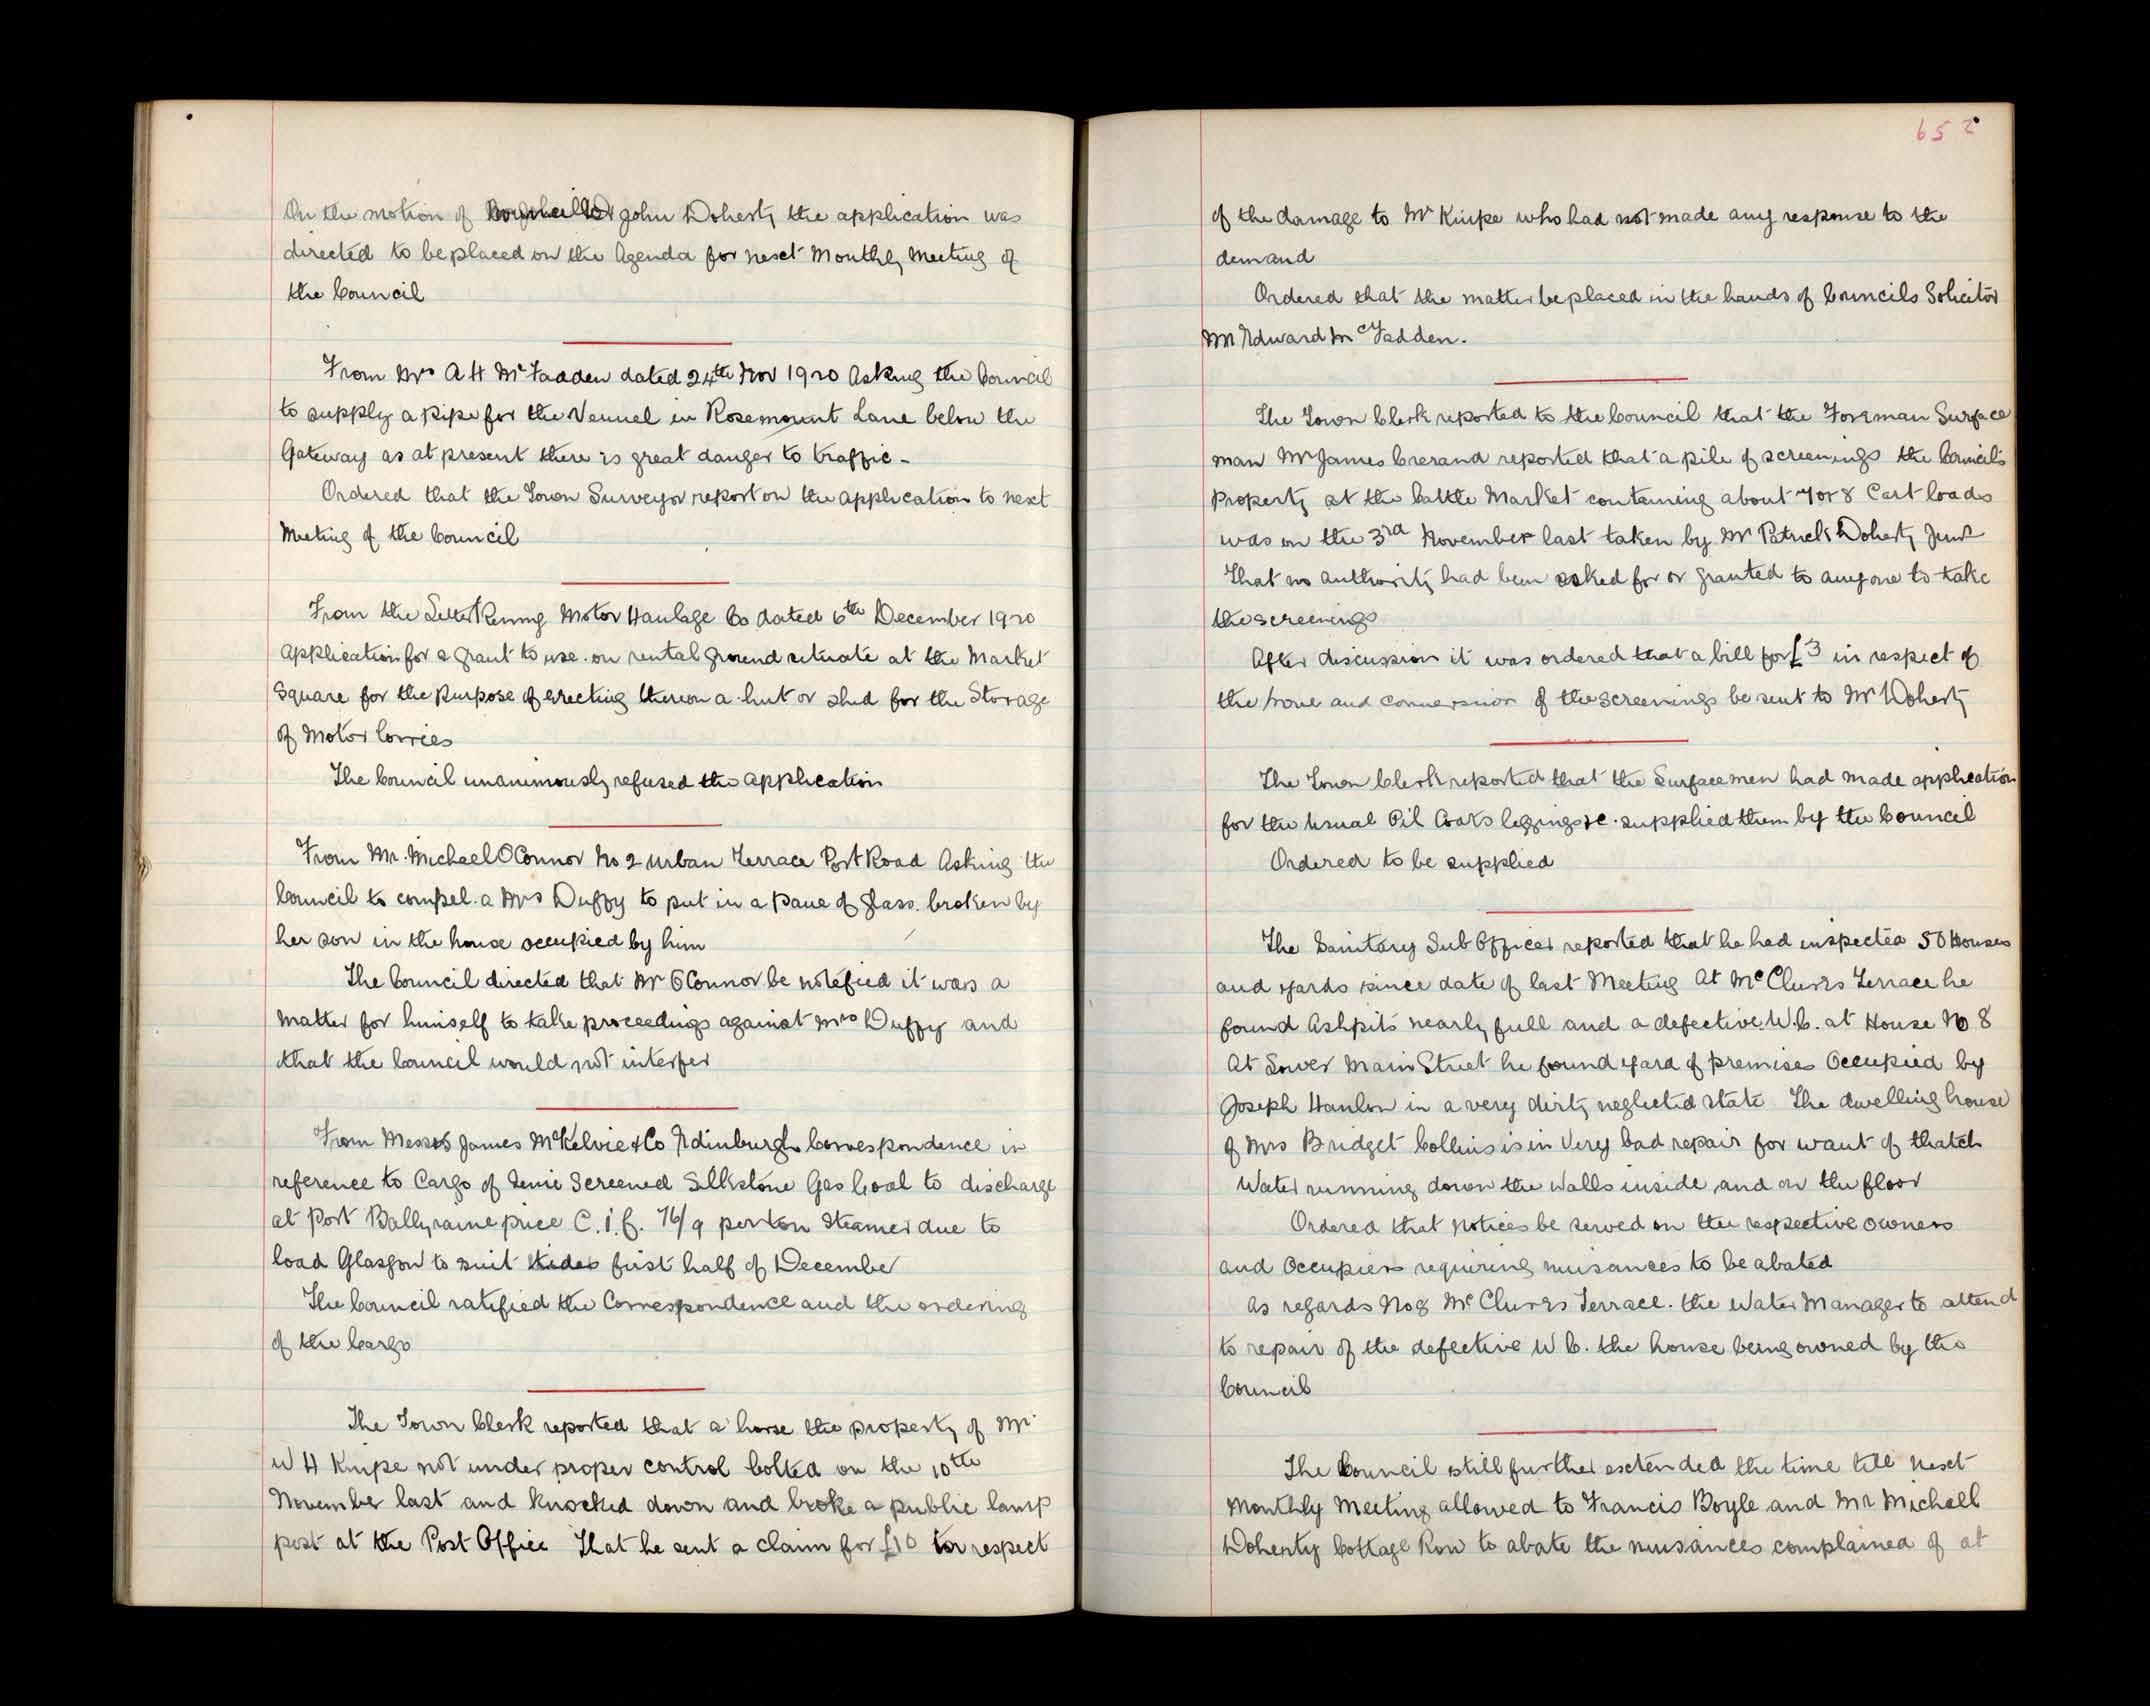 On the motion of Councillor John Doherty the application was
directed to be placed on the Agenda for next Monthly Meeting of
the Council
From Mrs A H McFadden dated 24th Nov 1920 Asking the Council
to supply a pipe for the Vennel in Rosemount Lane below the
Gateway as at present there is great danger to traffic -
Ordered that the Town Surveyor report on the application to next
Meeting of the Council
From the Letterkenny Motor Haulage Co dated 6th December 1920
application for a grant to use on rental ground situate at the Market
Square for the purpose of erecting thereon a hut or shed for the Storage
of Motor Lorries
The Council unanimously refused the application
From Mr. Michael OConnor No 2 Urban Terrace Port Road Asking the
Council to compel a Mrs Duffy to put in a pane of glass broken by
her son in the house occupied by him
The Council directed that Mr OConnor be notified it was a
matter for himself to take proceedings against Mrs Duffy and
that the Council would not interfer
From Messrs James McKelvie & Co Edinburgh Correspondence in
reference to Cargo of Screened Silkstone Gas Coal to discharge
at Port Ballyraine price C.i.f. 76/9 per ton Steamer due to
load Glasgow to suit tides first half of December
The Council ratified the Correspondence and the ordering
of the Cargo
The Town Clerk reported that a horse the property of Mr
W H Knipe not under proper control bolted on the 10th
November last and knocked down and broke a public lamp
post at the Post Office That he sent a claim for £10 for respect
652
of the damage to Mr Knipe who had not made any response to the
demand
Ordered that the matter be placed in the hands of Councils Solicitor
Mr Edward McFadden.
The Town Clerk reported to the Council that the Foreman Surface
man Mr James Crerand reported that a pile of screenings the Council's
property at the Cattle Market containing about 7 or 8 Cart loads
was on the 3rd November last taken by Mr Patrick Doherty Junr
That no authority had been asked for or granted to anyone to take
the screenings
After discussion it was ordered that a bill for £3 in respect of
the and conversion of the screenings be sent to Mr Doherty
The Town Clerk reported that the Surfacemen had made application
for the usual Oil Coats leggings &c. supplied them by the Council
Ordered to be supplied
The Sanitary Sub Officer reported that he had inspected 50 Houses
and yards since date of last Meeting At McClures Terrace he
found Ashpits nearly full and a defective W.C. at House No 8
At Lower Main Street he found yard of premises Occupied by
Joseph Hanlon in a very dirty neglected state The dwelling house
of Mrs Bridget Collins is in Very bad repair for want of thatch
Water running down the walls inside and on the floor
Ordered that notices be served on the respective owners
and Occupiers requiring nuisances to be abated
As regards No 8 McClures Terrace. the Water Manager to attend
to repair of the defective W C. the house being owned by the
Council
The Council still further extended the time till next
Monthly Meeting allowed to Francis Boyle and Mr Michael
Doherty Cottage Row to abate the nuisances complained of at